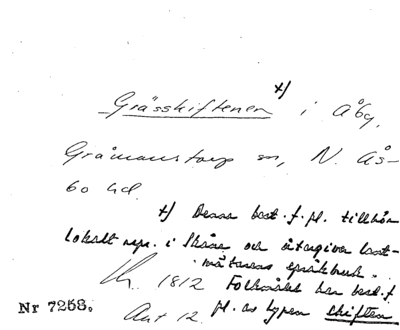 x)
Grässkiftenen i Åby,
Gråmanstorp sn, N. Ås-
bo hd.
x) Denna best. f. pl. tillhör
lokalt repr. i Skåne och återgiver lant-
mätarens språkbruk.
1812 Folkmålet har best. f.
Nr 7258. Akt 12. pl. av typen skiften